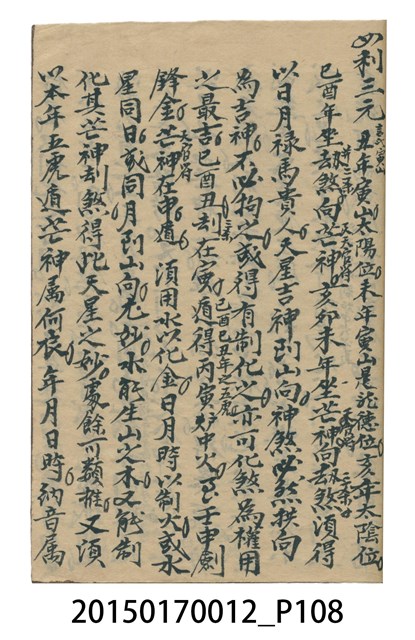 必利三元 丑年寅山太陽位未年寅山是龍德位亥年太陰位
己酉年坐劫煞向芒神亥卯未年坐芒神向劫煞須得
以日月禄馬貴人天星吉神到山向神煞必然拱向
為吉神不必拘之或得有制化之亦可化煞為權用
之最吉己酉丑刦在寅遁得丙寅炉中火又壬申劍
鋒金芒神在申遁須用水以化金日月時以制火或水
星同日或同月到山向尤妙水能生山之木又能制
化其芒神刦煞得此天星之妙處餘可類推又須
以本年五虎遁芒神属何 年月日時納音属
20150170012_P108